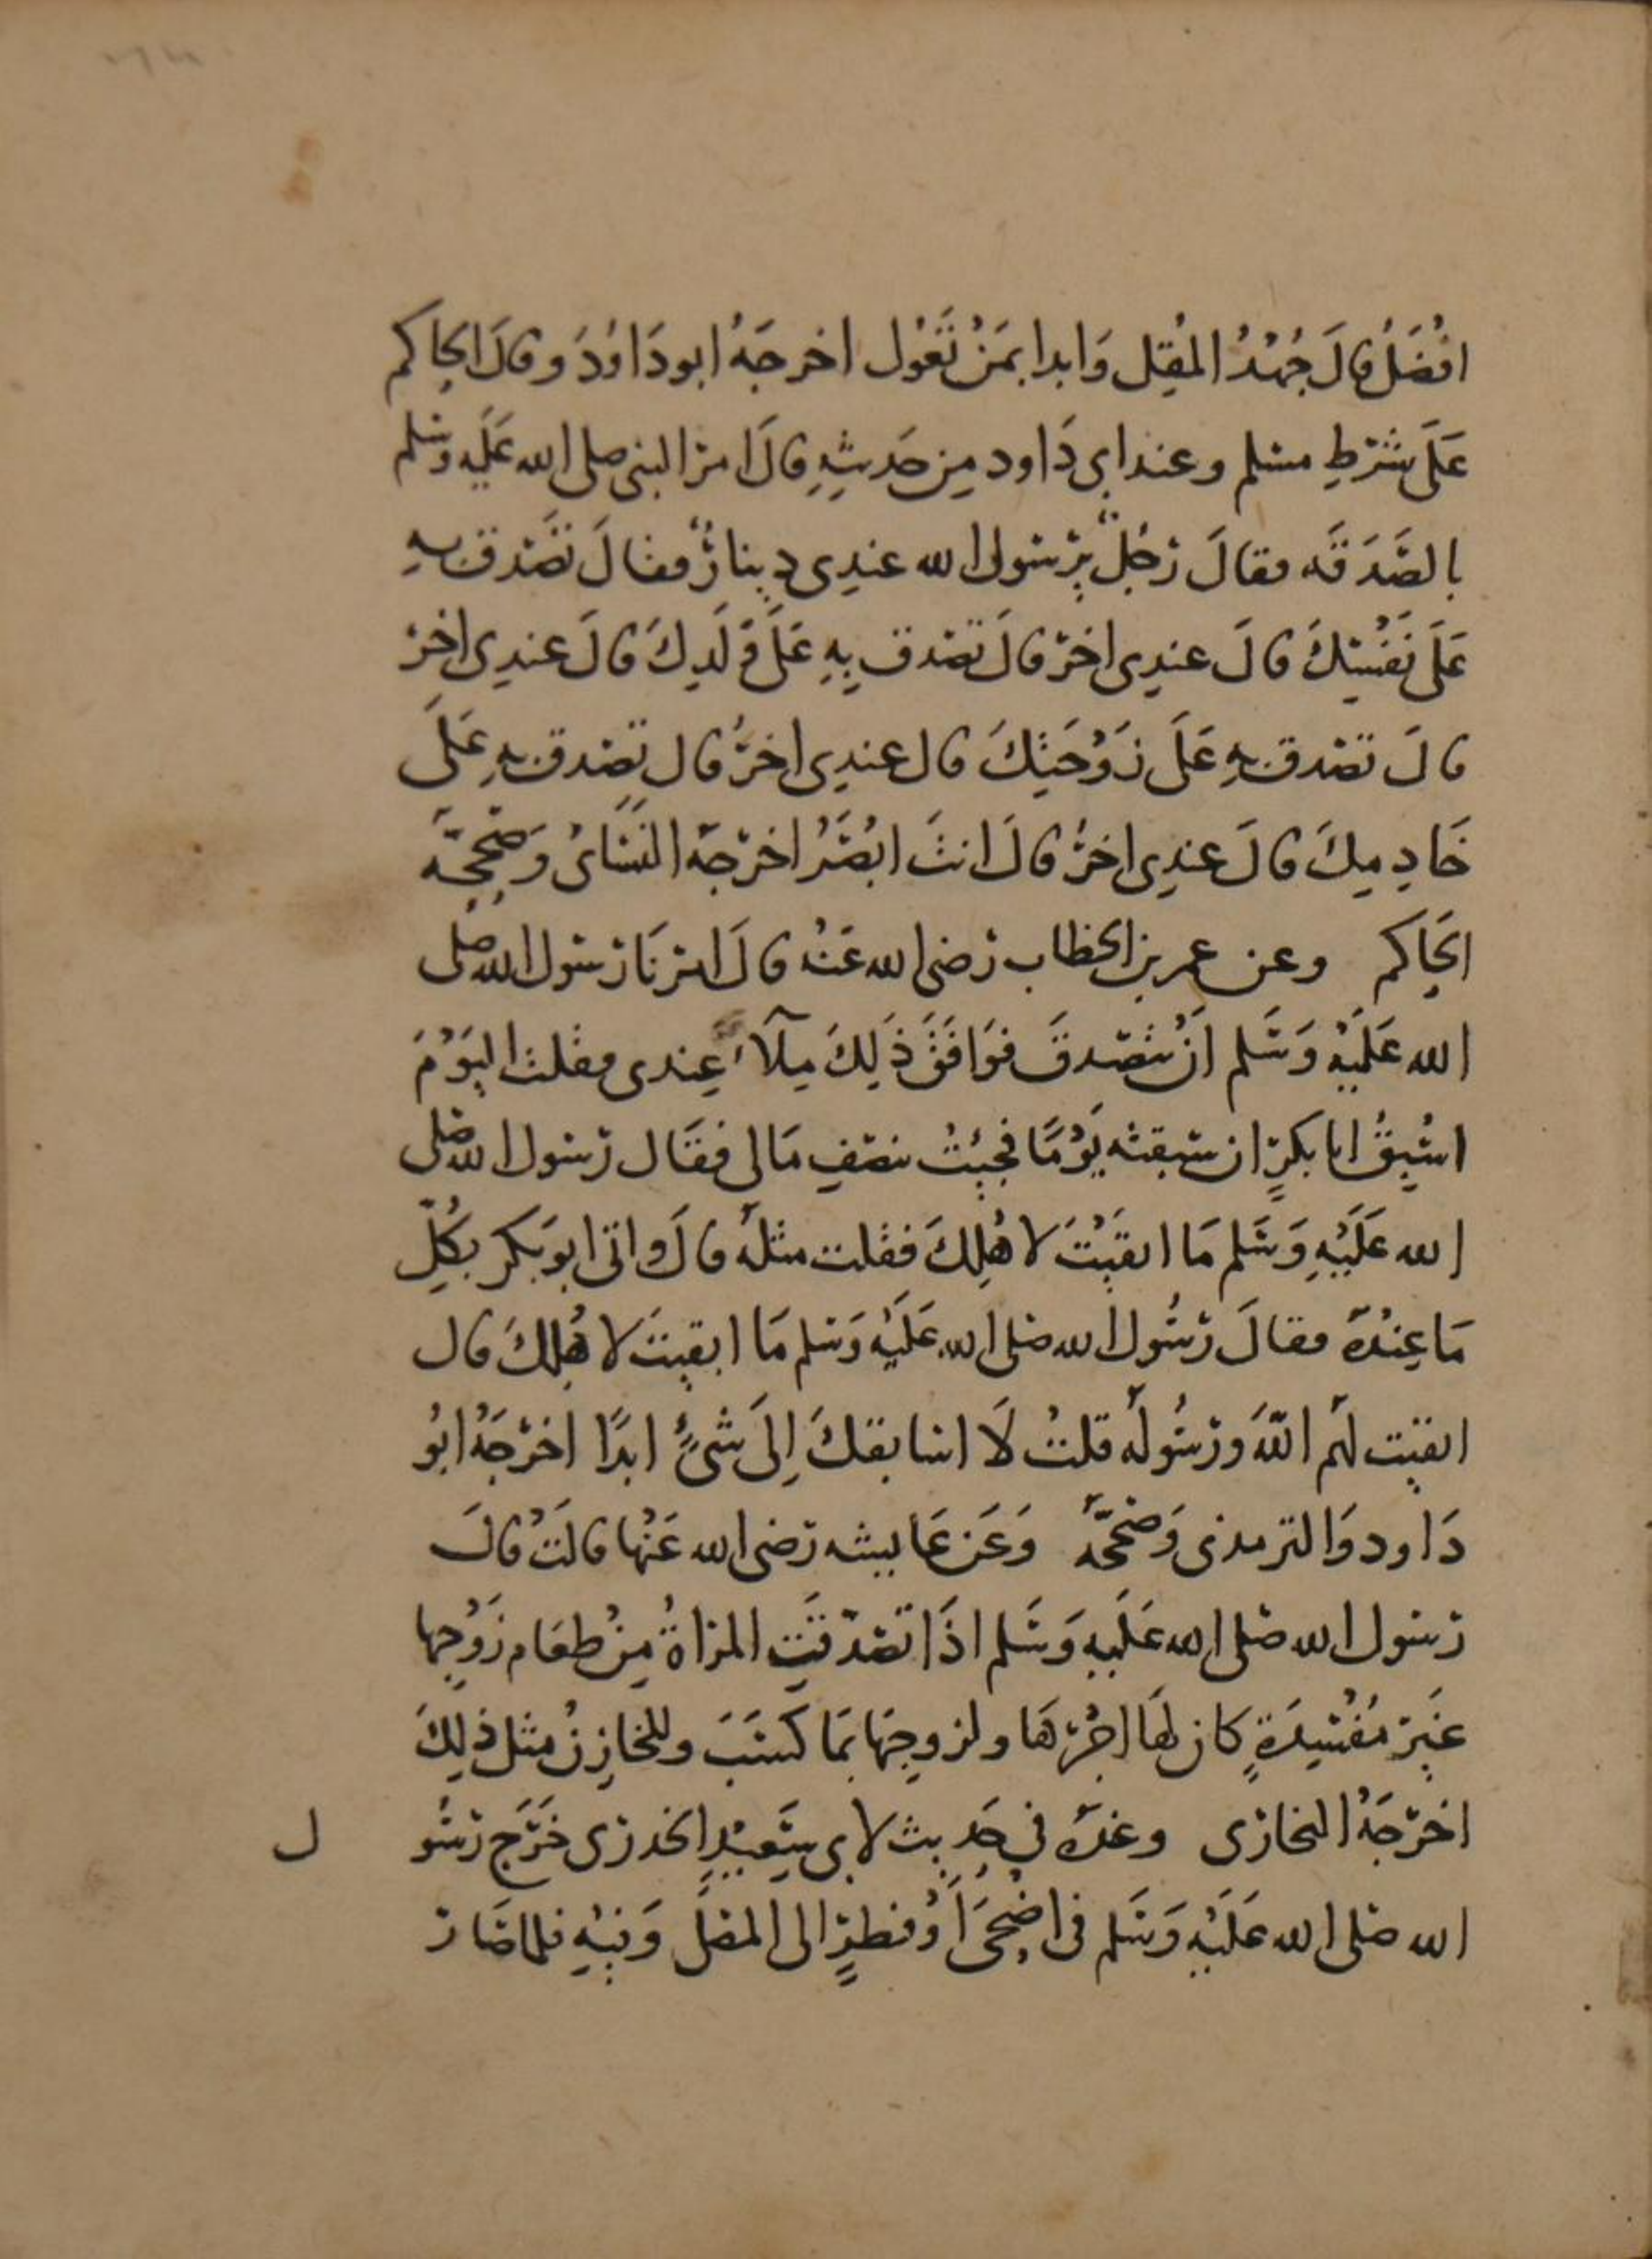 افْضَلُ قالَ جُهْدُ المُقِل وَابدا بمَنْ تَعُول اخرجَهُ ابو دَاوُدَ وقالَ الحاكم
عَلَى شَرْطِ مسلم وعند ابي دَاود مِن حَديثِهِ قالَ امر النبي صلى الله عَلَيه وسَلم
بالصَّدَقَه فقالَ رَجُلٌ يرسَول الله عندِى دِينارٌ فقالَ تَصَّدق بهِ
عَلَى نَفْسِكَ قالَ عندِى اخرَ قالَ تصَدق بِهِ عَلَى وَلَدِكَ قالَ عندِى اخرَ
قالَ تصَدق بهِ عَلَى زَوْجَتِكَ قال عندِى اخرُ قال تصَدق بهِ عَلَى
خَادِمِكَ قالَ عندِى اخرُ قالَ انتَ ابْصَرُ اخرَجَهُ النسَائُ وَصَحَّحَه
الحَاكم وعن عمر بن الخطاب رَضى الله عَنْهُ قالَ امرَنَا رَسَول الله صَلى
الله عَلَيْهِ وَسَلم انْ نتَصَدقَ فوَافَقَ ذَلِكَ مِلاً عِندى فقلتُ اليَوْمَ
اسْبِقُ ابا بكرٍ ان سَبقته يَوْمًا فجِئتُ بنصْفِ مَالى فقَال رَسَول الله صَلى
الله عَلَيْهِ وَسَلم مَا ابقَيْتَ لاهْلِكَ فقلت مثلَهُ قالَ واتى ابو بَكر بكُلِّ
مَا عِنْدَهُ فقالَ رَسُول الله صَلى الله عَلَيْهِ وَسَلم مَا ابقيتَ لاهْلِكَ قال
ابقيت لَهُم اللهَ وَرَسُولَهُ قلتُ لَا اسَابقكَ اِلَى شَىءٍ ابدًا اخرَجَهُ ابُو
دَاود وَالترمذى وَصَحَّحَهُ وَعَن عَايشه رَضى الله عَنْها قالَتْ قالَ
رَسَول الله صَلى الله عَلَيهِ وَسَلم اذَا تصَدّقَتِ المرَاةُ مِنْ طعَام زَوْجِها
غَيرَ مُفْسِدَةٍ كان لهَا اجْرُهَا ولزوجِهَا بمَا كَسَبَ وللخازِنُ مثل ذلِكَ
اخرَجَهُ البخارَى وعنهُ فى حَديث لابى سَعيْدٍ الخدرَى خَرَج رَسُو ل
الله صَلى الله عَلَيْهِ وَسَلم فى اضْحَى اَوْ فطرٍ الى المصَلَّى وَفِيْهِ فلما صَارَ